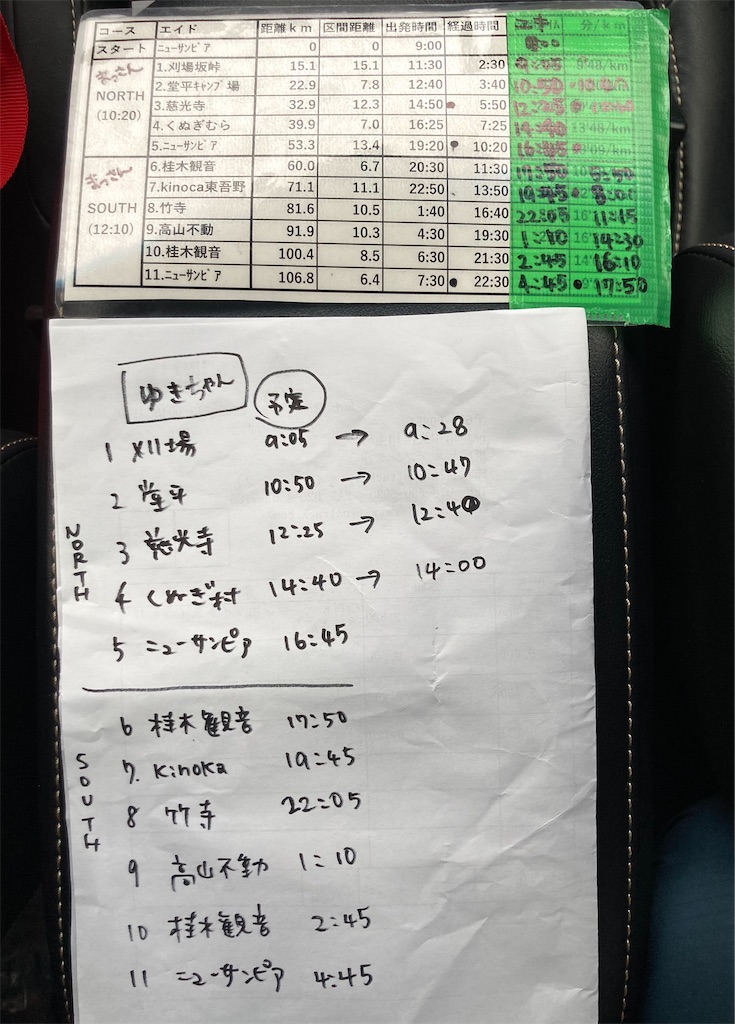 コース エイド 距離km 区間距離 出発時間 経過時間 分/km
スタート ニューサンピア 0 0 9:00
まっさん NORTH (10:20)
1.刈場坂峠 15.1 15.1 11:30 2:30 9:05 9'48/km
2.堂平キャンプ場 22.9 7.8 12:40 3:40 10:50
3.慈光寺 32.9 12.3 14:50 5:50
4.くぬぎむら 39.9 7.0 16:25 7:25 14:40 13'48/km
5.ニューサンピア 53.3 13.4 19:20 10:20 16:45
まっさん SOUTH (12:10)
6.桂木観音 60.0 6.7 20:30 11:30 17:50
7.kinoca東吾野 71.1 11.1 22:50 13:50 19:45 8:00
8.竹寺 81.6 10.5 1:40 16:40 22:05
9.高山不動 91.9 10.3 4:30 19:30 1:10 14:30
10.桂木観音 100.4 8.5 6:30 21:30 2:45 16:10
11.ニューサンピア 106.8 6.4 7:30 22:30 4:45 17:50
ゆきちゃん 予定
NORTH
1 刈場 9:05 → 9:28
2 堂平 10:50 → 10:47
3 慈光寺 12:25 → 12:40
4 くぬぎ村 14:40 → 14:00
5 ニューサンピア 16:45
SOUTH
6 桂木観音 17:50
7. kinoka 19:45
8 竹寺 22:05
9 高山不動 1:10
10 桂木観音 2:45
11 ニューサンピア 4:45